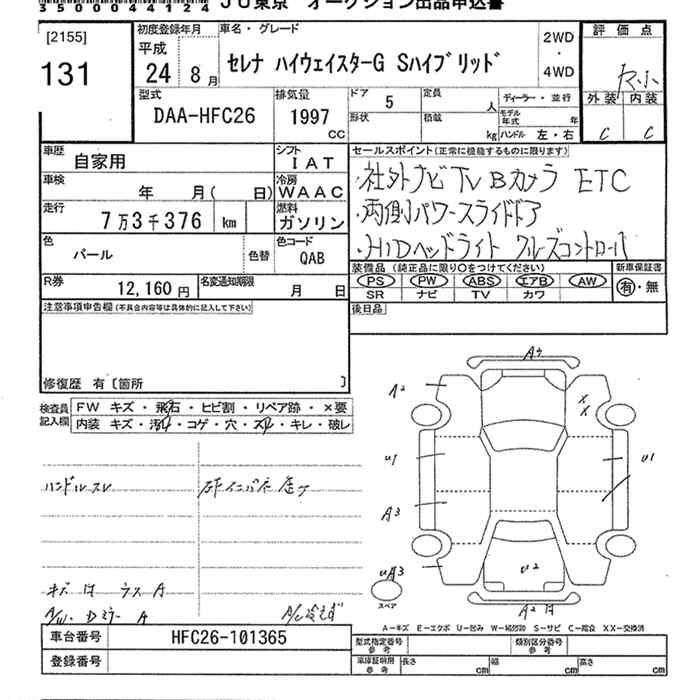 3500044124 JU東京 オークション出品申込書
[2155]
131
初度登録年月
平成
24年 8月
車名・グレード
セレナ ハイウェイスターG Sハイブリッド
2WD
・
4WD
評価点
外装 内装
C C
型式
DAA-HFC26
排気量
1997
CC
ドア
5
定員
人
ディーラー・並行
形状
積載
kg
モデル年式
年
ハンドル 左・右
車歴
自家用
シフト
IAT
車検
年 月( 日)
冷房
WAAC
走行
7万3千376 km
燃料
ガソリン
色
パール
色替
色コード
QAB
R券
12,160円
名変通知期限
月 日
セールスポイント(正常に機能するものに限ります)
・社外ナビ TV Bカメラ ETC
・両側パワースライドドア
・HIDヘッドライト クルーズコントロール
装備品(純正品に限り○をつけてください)
新車保証書
PS PW ABS エアB AW
有・無
SR ナビ TV カワ
後日品
注意事項申告欄(不具合内容等は具体的に記入して下さい)
修復歴 有〔箇所 〕
検査員
記入欄
FW キズ・飛石・ヒビ割・リペア跡・×要
内装 キズ・汚れ・コゲ・穴・スレ・キレ・破レ
ハンドルスレ
キズ凹 ラス A
A/W. Dミラー A
A/C冷えず
A2
U1
A3
UA3
X
X
U1
U2
A2凹
スペア
A-キズ E-エクボ U-凹み W-補修跡 S-サビ C-腐食 XX-交換済
車台番号
HFC26-101365
登録番号
型式指定番号
参考
類別区分番号
参考
車庫証明用
参考
長さ
cm
幅
cm
高さ
cm